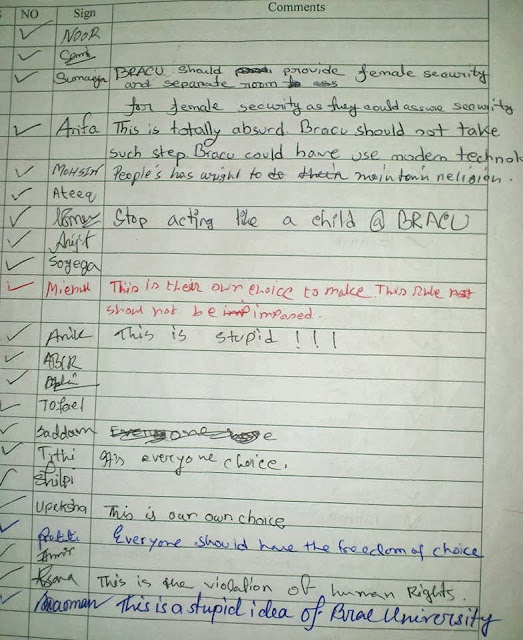 NO Sign Comments
NOOR
Sumaiya BRACU should provide female security
and separate room to
for female security as they could assure security
Arifa This is totally absurd. Bracu should not take
such step. Bracu could have use modern technol
MOHSIN People's has wright to do their maintain religion.
Ateeq
Stop acting like a child @ BRACU
Soyega
This is their own choice to make. This rule not
shoud not be imposed.
Anik This is stupid !!!
ABIR
TOfael
Saddam Everyone
Tithi It's everyone choice.
Shilpi
Upeksha This is our own choice
Everyone should have the freedom of choice
Amir
This is the violation of human Rights.
This is a stupid idea of Brac University